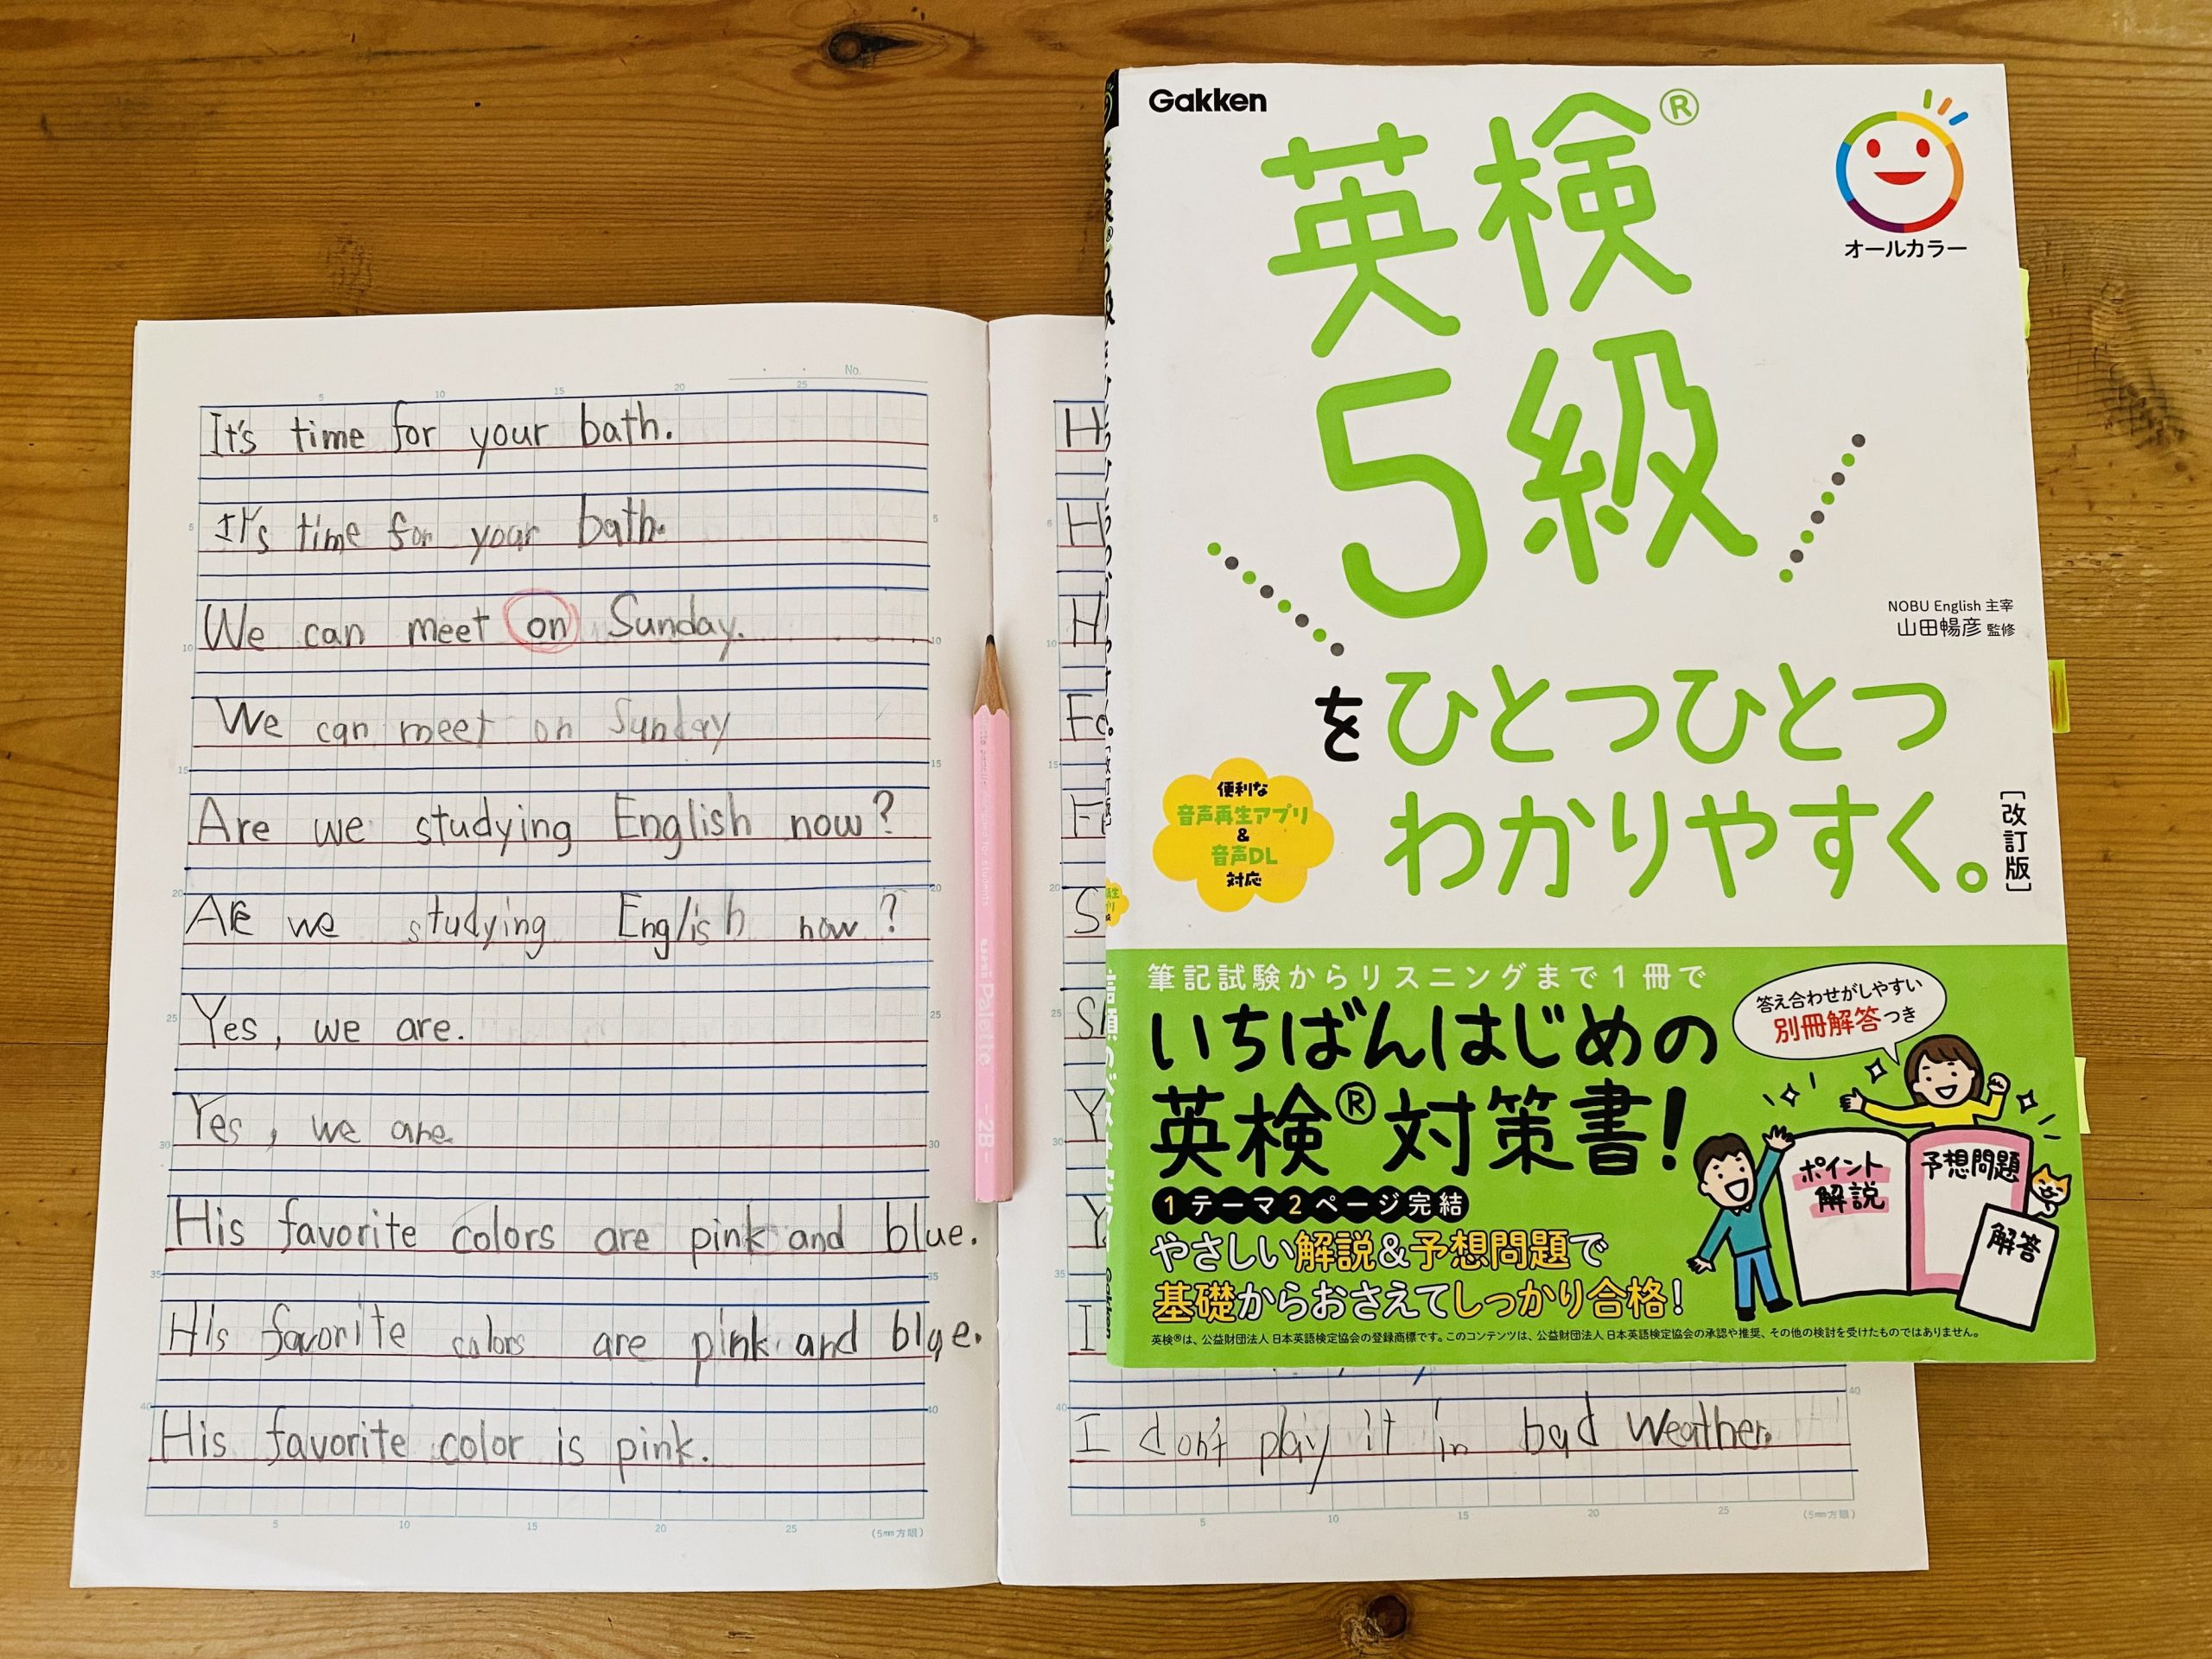 It's time for your bath.
It's time for your bath.
We can meet on Sunday.
We can meet on Sunday
Are we studying English now?
Are we studying English now?
Yes, we are.
Yes, we are.
His favorite colors are pink and blue.
His favorite colors are pink and blue.
His favorite color is pink.
No.
(5mm方眼)
Palette
2B
I don't play it in bad weather.
(5mm方眼)
Gakken
英検®
5級
をひとつひとつ
わかりやすく。
[改訂版]
オールカラー
NOBU English 主宰
山田暢彦 監修
便利な
音声再生アプリ
&
音声DL
対応
筆記試験からリスニングまで1冊で
いちばんはじめの
英検®対策書!
1テーマ2ページ完結
やさしい解説&予想問題で
基礎からおさえてしっかり合格!
答え合わせがしやすい
別冊解答つき
ポイント
解説
予想問題
解答
英検®は、公益財団法人 日本英語検定協会の登録商標です。このコンテンツは、公益財団法人 日本英語検定協会の承認や推奨、その他の検討を受けたものではありません。
Gakken